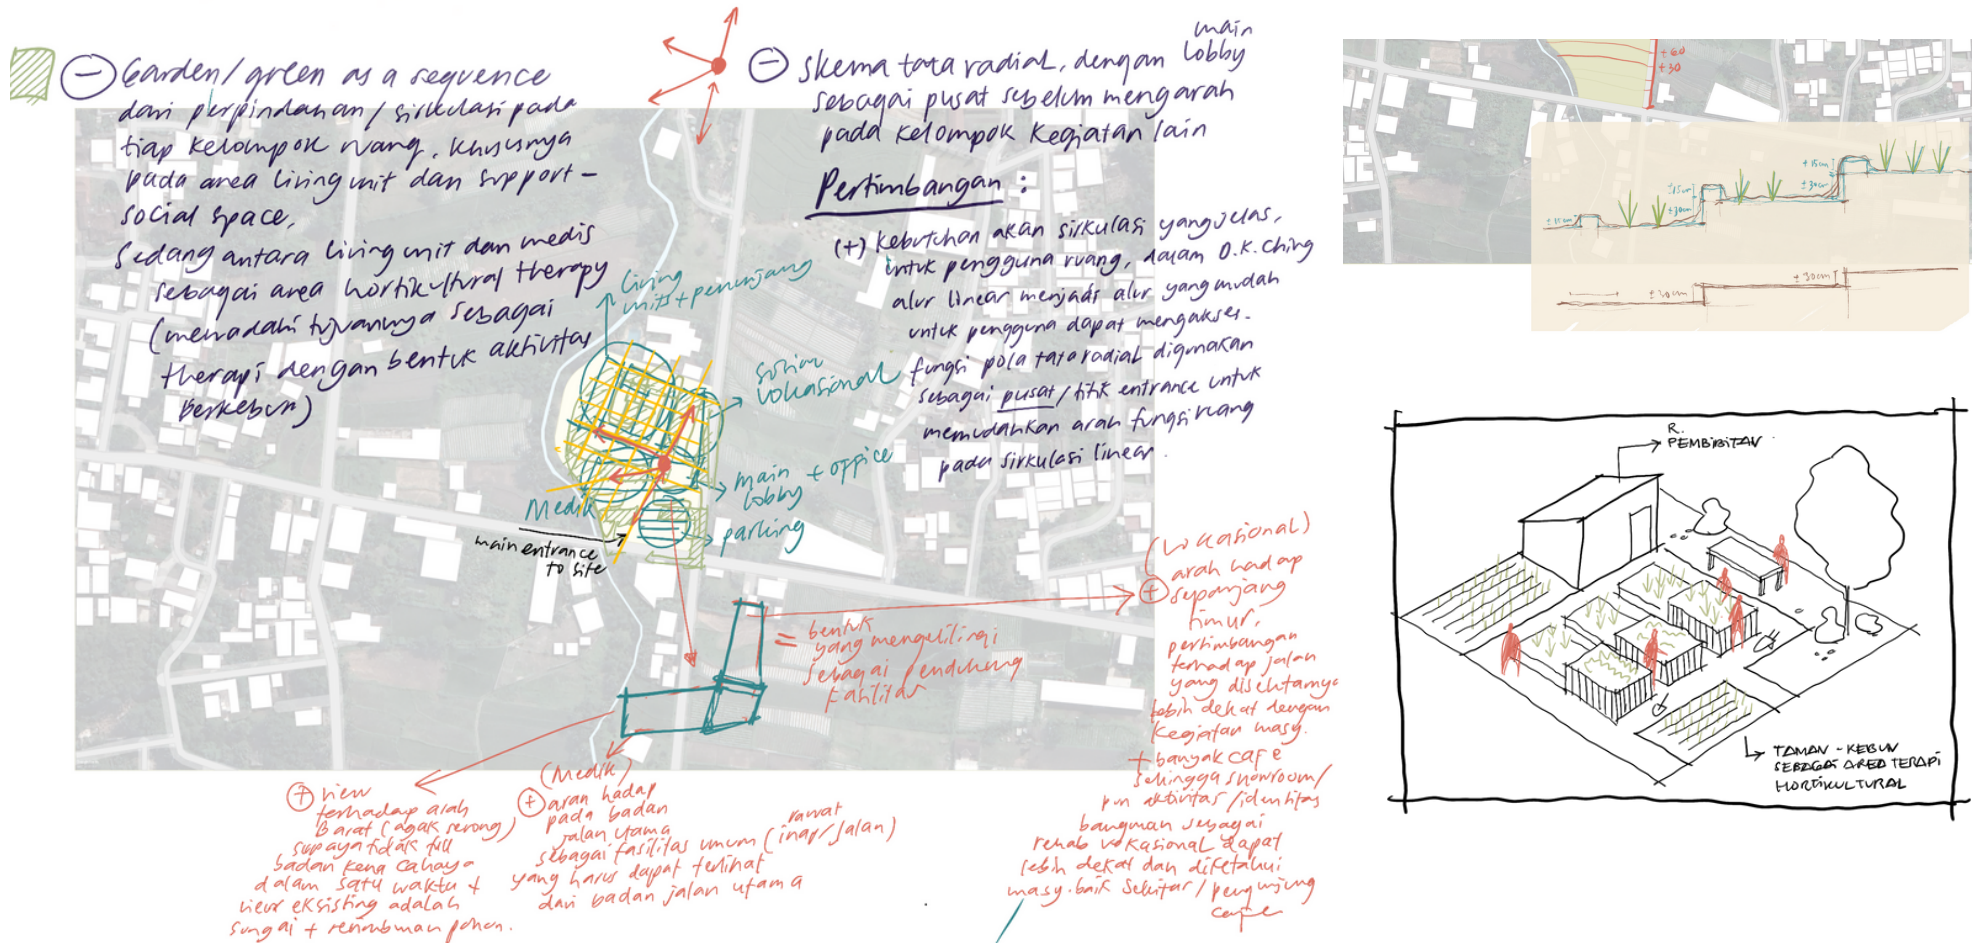 Garden/green as a sequence
dari perpindahan/sirkulasi pada
tiap kelompok ruang, khususnya
pada area living unit dan support-
social space,
Sedang antara living unit dan medis
sebagai area hortikultural therapy
(mewadahi tujuannya sebagai
therapi dengan bentuk aktivitas
berkebun)
Skema tata radial, dengan main lobby
sebagai pusat sebelum mengarah
pada kelompok kegiatan lain
Pertimbangan :
(+) kebutuhan akan sirkulasi yang jelas,
untuk pengguna ruang, dalam D.K. Ching
alur linear menjadi alur yang mudah
untuk pengguna dapat mengakses.
fungsi pola tata radial digunakan
sebagai pusat/titik entrance untuk
memudahkan arah fungsi ruang
pada sirkulasi linear.
living
units + penunjang
vokasional
main + office
lobby
parking
Medik
main entrance
to site
= bentuk
yang mengelilingi
sebagai pendukung
fasilitas
(Vokasional)
+ arah hadap
sepanjang
timur,
pertimbangan
terhadap jalan
yang disekitarnya
lebih dekat dengan
kegiatan masy.
+ banyak cafe
sehingga showroom/
pun aktivitas/identitas
bangunan sebagai
rehab vokasional dapat
lebih dekat dan diketahui
masy. baik sekitar/pengunjung
cafe
+ view
terhadap arah
Barat (agak serong)
supaya tidak full
badan kena cahaya
dalam satu waktu +
view eksisting adalah
sungai + rerimbunan pohon.
(Medik)
+ arah hadap
pada badan
jalan utama
sebagai fasilitas umum (rawat inap/jalan)
yang harus dapat terlihat
dari badan jalan utama
+60
+30
+15cm
±30cm
±15cm
±30cm
±15cm
±30cm
±30cm
R.
PEMBIBITAN
TAMAN - KEBUN
SEBAGAI AREA TERAPI
HORTIKULTURAL